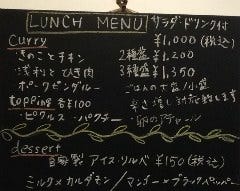 LUNCH MENU サラダ・ドリンク付
Curry ¥1,000(税込)
きのことチキン 2種盛 ¥1,200
浅利とひき肉 3種盛 ¥1,350
ポークビンダルー ごはんの大盛/小盛
topping 各¥100
ピクルス・パクチー・卵のアチャール
dessert
自家製 アイス・ソルベ ¥150(税込)
ミルク×カルダモン/マンゴー×ブラックペッパー